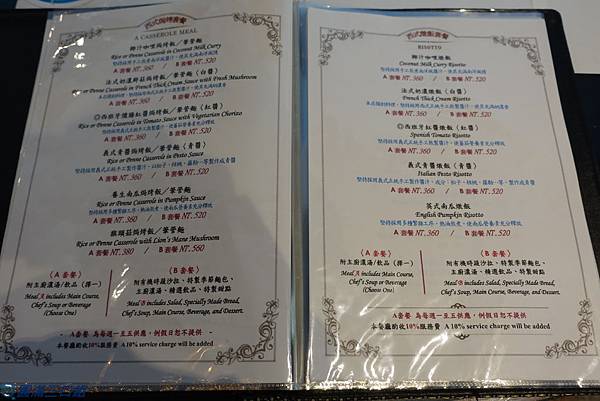 西式焗烤套餐
A CASSEROLE MEAL
椰汁咖哩焗烤飯／筆管麵
Rice or Penne Casserole in Coconut Milk Curry
A 套餐 NT.360 / B 套餐 NT.520
法式奶濃鮮菇焗烤飯／筆管麵（白醬）
Rice or Penne Casserole in French Thick Cream Sauce with Fresh Mushroom
A 套餐 NT.360 / B 套餐 NT.520
◎西班牙濃腸紅醬焗烤飯／筆管麵（紅醬）
Rice or Penne Casserole in Tomato Sauce with Vegetarian Chorizo
A 套餐 NT.360 / B 套餐 NT.520
義式青醬焗烤飯／筆管麵（青醬）
Rice or Penne Casserole in Pesto Sauce
A 套餐 NT.360 / B 套餐 NT.520
養生南瓜焗烤飯／筆管麵
Rice or Penne Casserole in Pumpkin Sauce
A 套餐 NT.360 / B 套餐 NT.520
猴頭菇焗烤飯／筆管麵
Rice or Penne Casserole with Lion's Mane Mushroom
A 套餐 NT.380 / B 套餐 NT.560
《A 套餐》
附主廚濃湯/飲品（擇一）
Meal A includes Main Course,
Chef's Soup or Beverage
(Choose One)
《B 套餐》
附有機時蔬沙拉、特製季節麵包、
主廚濃湯、精選飲品、特製甜點
Meal B includes Salad, Specially Made Bread,
Chef's Soup, Main Course, Beverage, and Dessert.
- A套餐 為每週一至五供應，例假日恕不提供 -
本餐廳酌收10%服務費 A 10% service charge will be added
西式燉飯套餐
RISOTTO
椰汁咖哩燉飯
Coconut Milk Curry Risotto
A 套餐 NT.360 / B 套餐 NT.520
法式奶濃燉飯（白醬）
French Thick Cream Risotto
A 套餐 NT.360 / B 套餐 NT.520
◎西班牙紅醬燉飯（紅醬）
Spanish Tomato Risotto
A 套餐 NT.360 / B 套餐 NT.520
義式青醬燉飯（青醬）
Italian Pesto Risotto
A 套餐 NT.360 / B 套餐 NT.520
英式南瓜燉飯
English Pumpkin Risotto
A 套餐 NT.360 / B 套餐 NT.520
《A 套餐》
附主廚濃湯/飲品（擇一）
Meal A includes Main Course,
Chef's Soup or Beverage
(Choose One)
《B 套餐》
附有機時蔬沙拉、特製季節麵包、
主廚濃湯、精選飲品、特製甜點
Meal B includes Salad, Specially Made Bread,
Chef's Soup, Main Course, Beverage, and Dessert.
- A套餐 為每週一至五供應，例假日恕不提供 -
本餐廳酌收10%服務費 A 10% service charge will be added